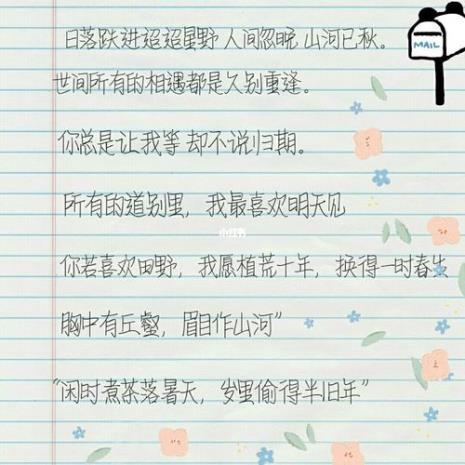 MAIL
日落跌进迢迢星野 人间忽晚 山河已秋。
世间所有的相遇都是久别重逢。
你总是让我等 却不说归期。
所有的道别里，我最喜欢明天见
小红书
你若喜欢田野，我愿植荒十年，换得一时春生
胸中有丘壑，眉目作山河”
“闲时煮茶落暑天，岁里偷得半旧年”